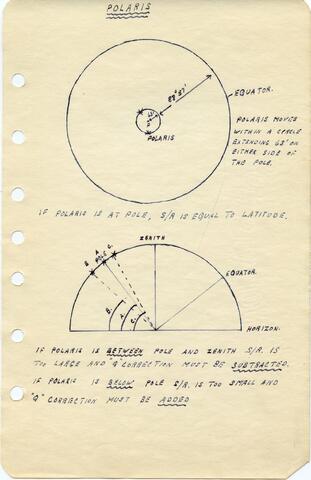 POLARIS
EQUATOR.
POLARIS
POLARIS MOVES
WITHIN A CIRCLE
EXTENDING 63' ON
EITHER SIDE OF
THE POLE.
IF POLARIS IS AT POLE, S/R IS EQUAL TO LATITUDE.
ZENITH
B A POLE C.
EQUATOR.
B. A. C.
HORIZON.
IF POLARIS IS BETWEEN POLE AND ZENITH S/R. IS
TOO LARGE AND Q CORRECTION MUST BE SUBTRACTED.
IF POLARIS IS BELOW POLE S/R. IS TOO SMALL AND
"Q" CORRECTION MUST BE ADDED